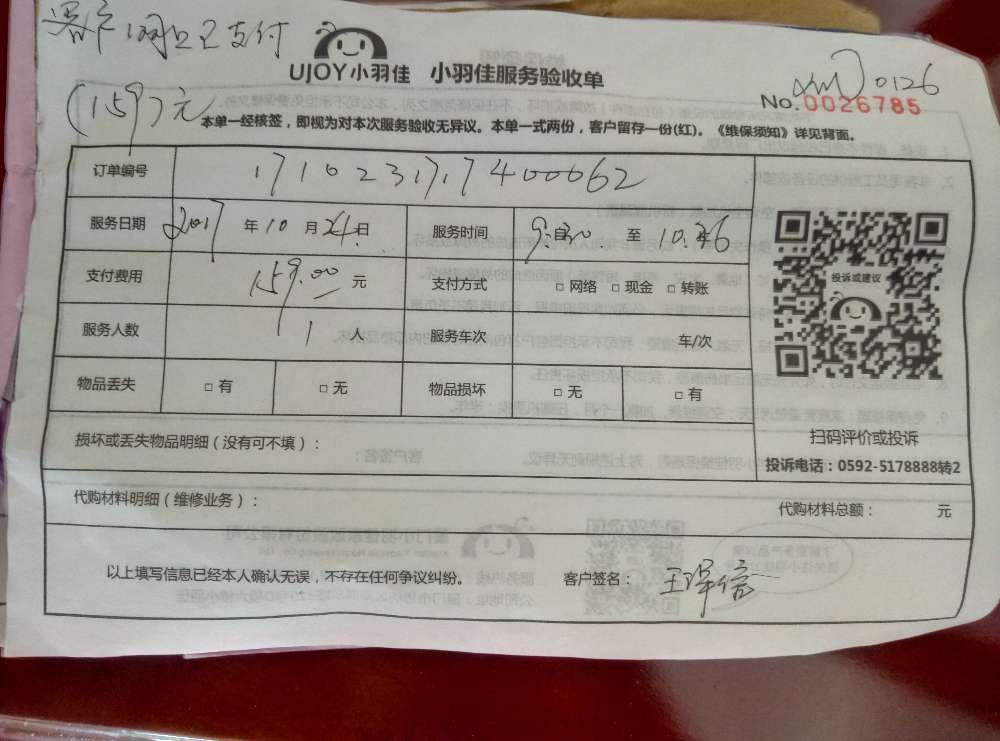 客户网上已支付
(159)元
UJOY小羽佳 小羽佳服务验收单
0126
No.0026785
本单一经核签，即视为对本次服务验收无异议。本单一式两份，客户留存一份(红)。《维保须知》详见背面。
订单编号 1710231717400062
服务日期 2017 年 10 月 24 日 服务时间 至 10:36
支付费用 159.00 元 支付方式 □ 网络 □ 现金 □ 转账
投诉或建议
服务人数 1 人 服务车次 车/次
物品丢失 □ 有 □ 无 物品损坏 □ 无 □ 有
扫码评价或投诉
损坏或丢失物品明细（没有可不填）：
投诉电话：0592-5178888转2
代购材料明细（维修业务）： 代购材料总额： 元
以上填写信息已经本人确认无误，不存在任何争议纠纷。 客户签名：